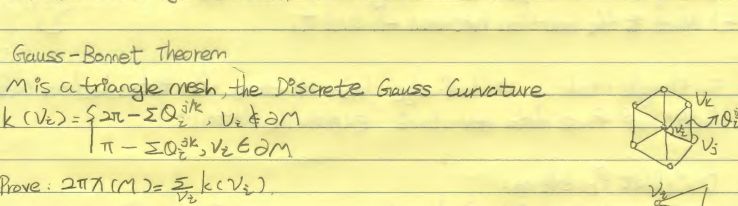 Gauss-Bonnet Theorem
M is a triangle mesh, the Discrete Gauss Curvature
k(Vi) = { 2π - ΣQi^jk, Vi ∉ ∂M
π - ΣQi^jk, Vi ∈ ∂M
Prove: 2πχ(M) = Σ_Vi k(Vi).
Vk
Vi
Vj
Vi